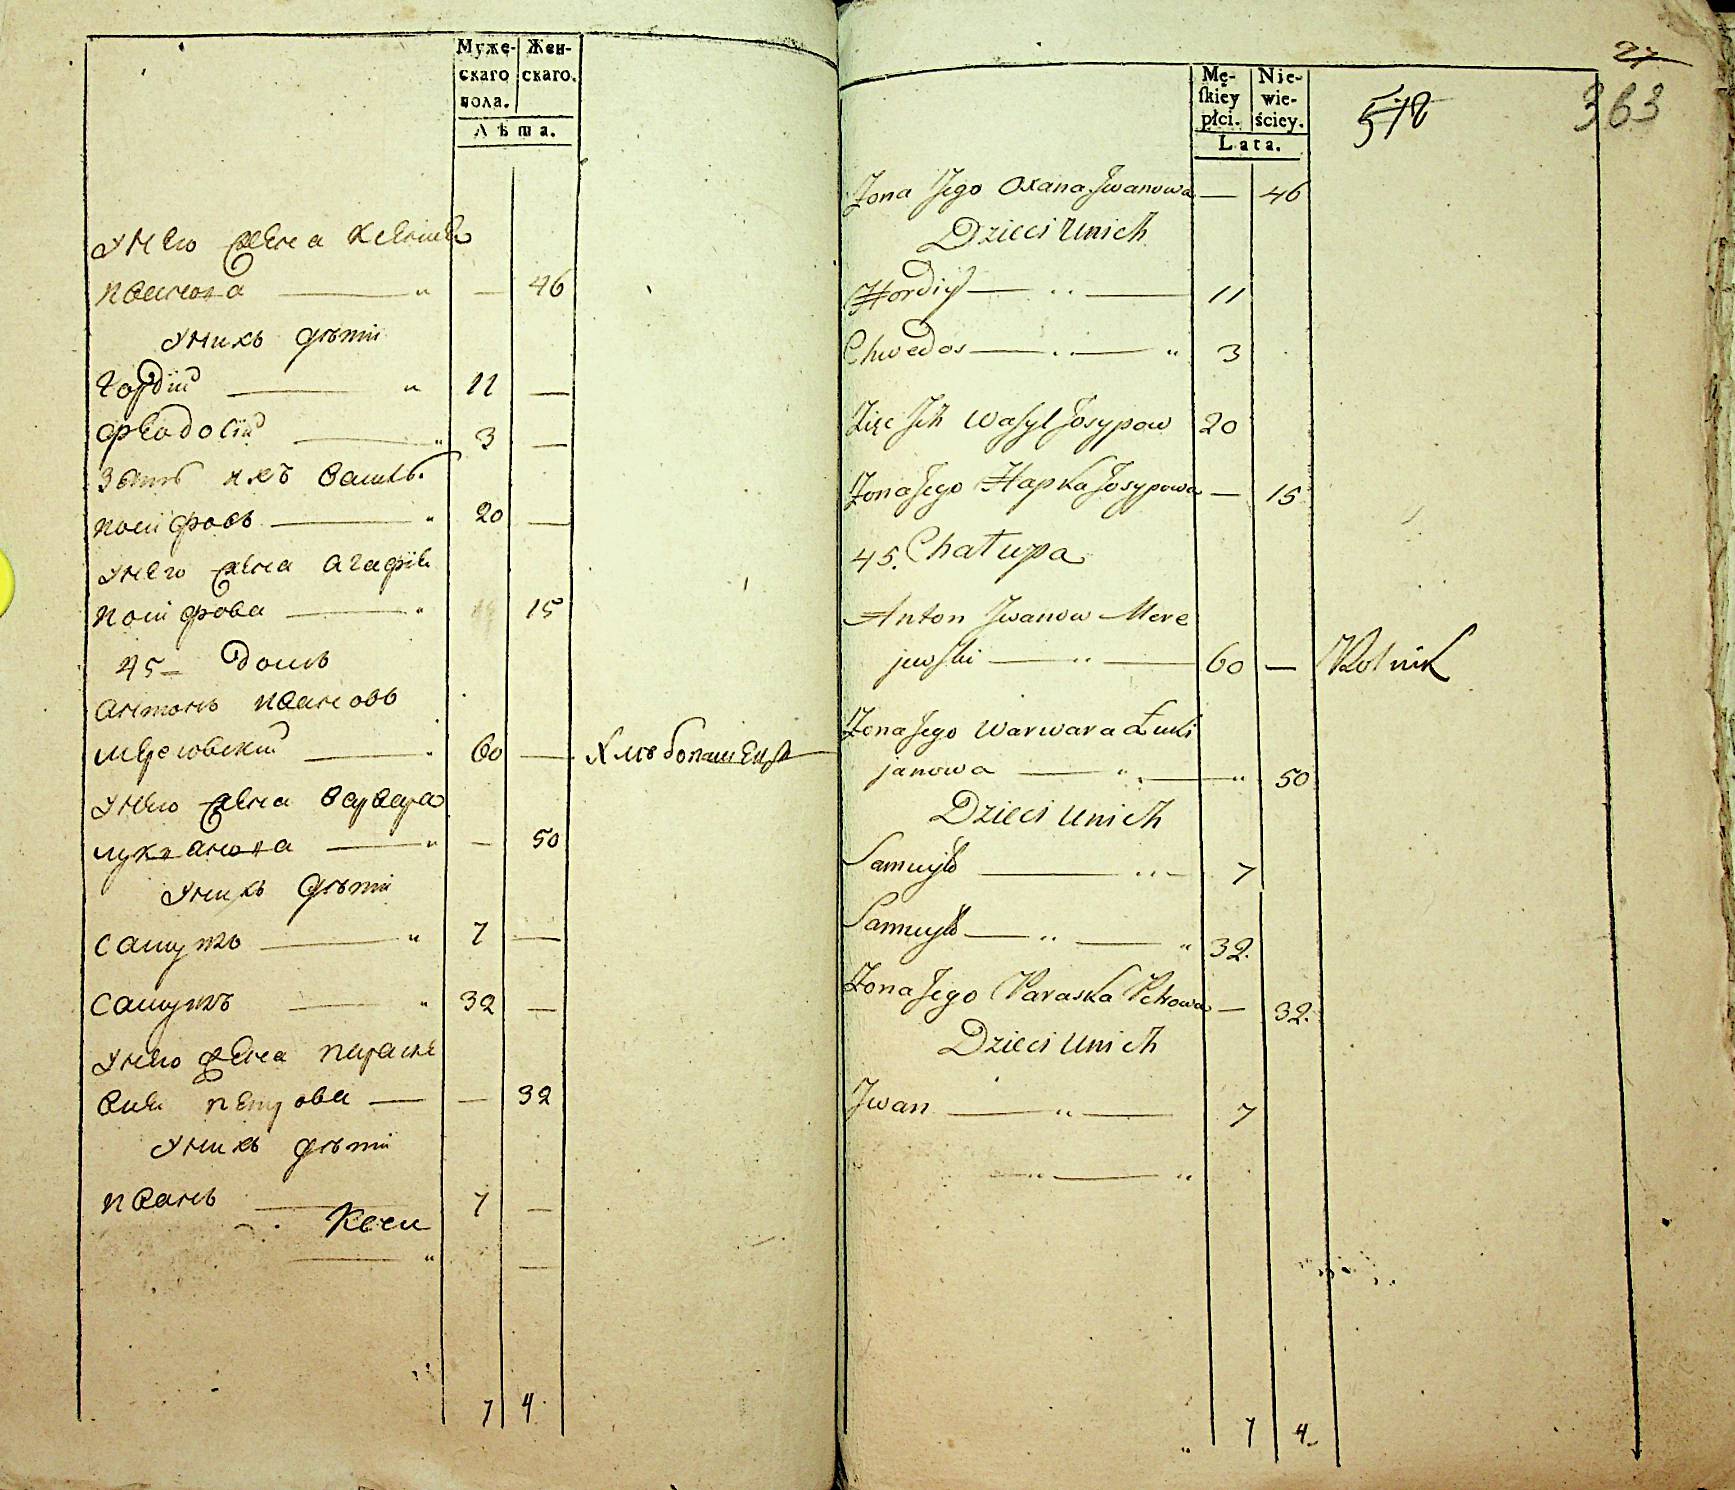 Муже-
скаго
пола.
Жен-
скаго.
Лѣта.
У него жена Ксения
Иванова — " — 46
У нихъ дѣти
Гордій — " 11 —
Феодосій — " 3 —
Зять ихъ Васил.
Йосифовъ — " 20 —
У него жена Агафія
Йосифова — " 15
45 — Домъ
Антонъ Ивановъ
Мереювский — " 60 — Хлѣбопашецъ
У него жена Варвара
Лукянова — " — 50
У нихъ дѣти
Самуилъ — " 7 —
Самуилъ — " 32 —
У него жена Параске
вия Петрова — — 32
У нихъ дѣти
Иванъ — 7 —
7 4
27
Mę-
skiey
płci.
Nie-
wie-
ściey.
Lata.
578
363
Żona Jego Oxana Jwanowa — 46
Dzieci u nich
Hordiy — " — 11
Chwedos — " — " 3
Zięć Jch Wasyl Josypow 20
Żona Jego Hapka Josypowa — 15
45. Chałupa
Anton Jwanow Mere
jewski — " — 60 — Rolnik
Żona Jego Warwara Łuki
janowa — " — " 50
Dzieci u nich
Samuyło — " — 7
Samuyło — " — " 32.
Żona Jego Paraska Petrowa — 32.
Dzieci u nich
Jwan — " — 7
— " — "
7 4